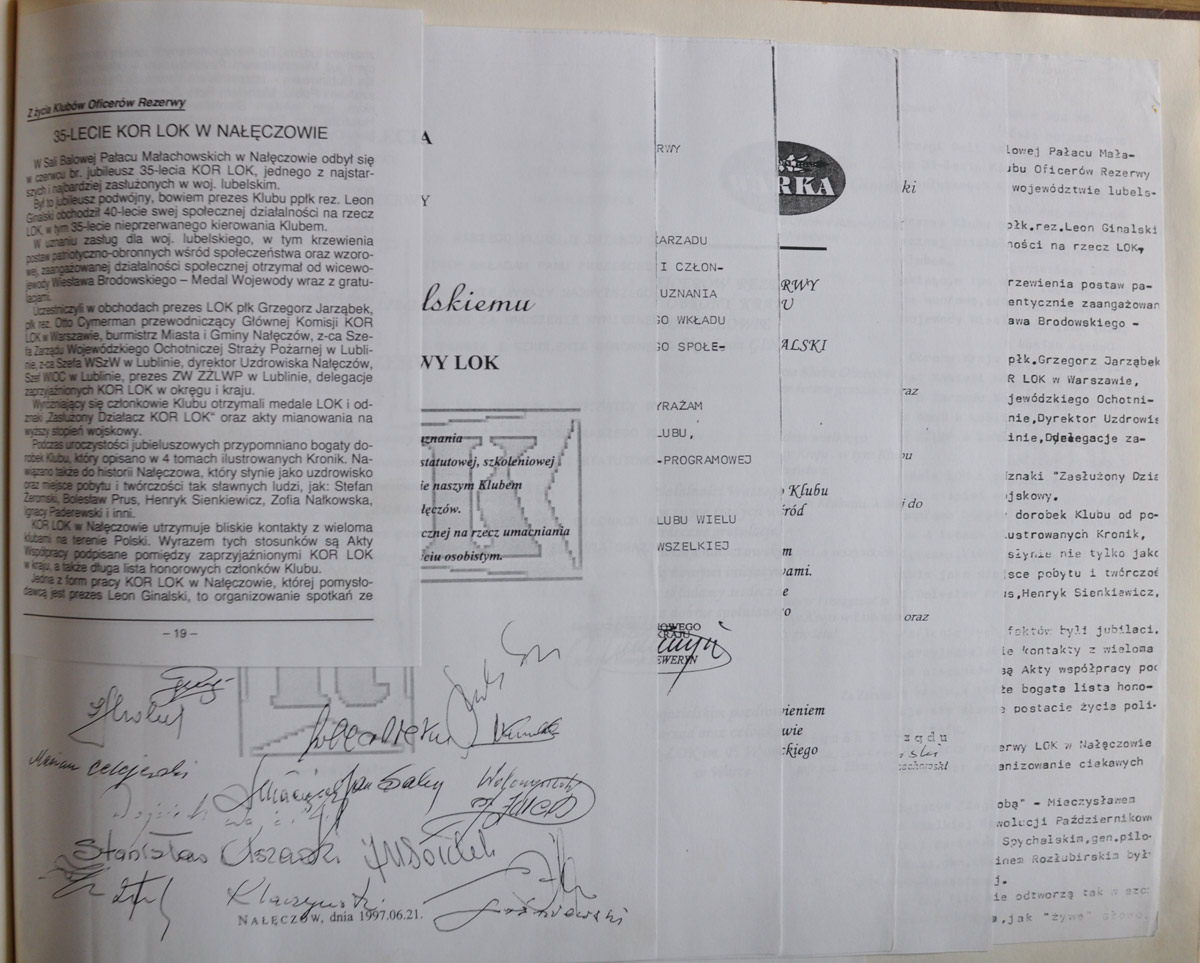 Z życia Klubów Oficerów Rezerwy
35-LECIE KOR LOK W NAŁĘCZOWIE
W Sali Balowej Pałacu Małachowskich w Nałęczowie odbył się
w czerwcu br. jubileusz 35-lecia KOR LOK, jednego z najstar-
szych i najbardziej zasłużonych w woj. lubelskim.
Był to jubileusz podwójny, bowiem prezes Klubu ppłk rez. Leon
Ginalski obchodził 40-lecie swej społecznej działalności na rzecz
LOK, w tym 35-lecie nieprzerwanego kierowania Klubem.
W uznaniu zasług dla woj. lubelskiego, w tym krzewienia
postaw patriotyczno-obronnych wśród społeczeństwa oraz wzoro-
wej, zaangażowanej działalności społecznej otrzymał od wicewo-
jewody Wiesława Brodowskiego – Medal Wojewody wraz z gratu-
lacjami.
Uczestniczyli w obchodach prezes LOK płk Grzegorz Jarząbek,
płk rez. Otto Cymerman przewodniczący Głównej Komisji KOR
LOK w Warszawie, burmistrz Miasta i Gminy Nałęczów, z-ca Sze-
fa Zarządu Wojewódzkiego Ochotniczej Straży Pożarnej w Lubli-
nie, z-ca Szefa WSzW w Lublinie, dyrektor Uzdrowiska Nałęczów,
Szef WIOC w Lublinie, prezes ZW ZŻLWP w Lublinie, delegacje
zaprzyjaźnionych KOR LOK w okręgu i kraju.
Wyróżniający się członkowie Klubu otrzymali medale LOK i od-
znaki „Zasłużony Działacz KOR LOK" oraz akty mianowania na
wyższy stopień wojskowy.
Podczas uroczystości jubieluszowych przypomniano bogaty do-
robek Klubu, który opisano w 4 tomach ilustrowanych Kronik. Na-
wiązano także do historii Nałęczowa, który słynie jako uzdrowisko
oraz miejsce pobytu i twórczości tak sławnych ludzi, jak: Stefan
Żeromski, Bolesław Prus, Henryk Sienkiewicz, Zofia Nałkowska,
Ignacy Paderewski i inni.
KOR LOK w Nałęczowie utrzymuje bliskie kontakty z wieloma
Klubami na terenie Polski. Wyrazem tych stosunków są Akty
Współpracy podpisane pomiędzy zaprzyjaźnionymi KOR LOK
w kraju, a także długa lista honorowych członków Klubu.
Jedna z form pracy KOR LOK w Nałęczowie, której pomysło-
dawcą jest prezes Leon Ginalski, to organizowanie spotkań ze
– 19 –
A
Y
lskiemu
WY LOK
uznania
statutowej, szkoleniowej i
ie naszym Klubem
łęczów.
cznej na rzecz umacniania
ciu osobistym.
Marian
Stanisław
NAŁĘCZÓW, dnia 1997.06.21.
RWY
ZARZADU
I CZŁON-
UZNANIA
GO WKŁADU
GO SPOŁE-
YRAŻAM
LUBU,
-PROGRAMOWEJ
LUBU WIELU
WSZELKIEJ
OWEGO
KRAJU
EWERYN
RKA
RWY
U
ALSKI
o Klubu
ród
m
ami.
e
o
ieniem
wie
ckiego
ki
raz
bu
i do
oraz
ządu
lowej Pałacu Mała-
ubu Oficerów Rezerwy
województwie lubels-
płk.rez.Leon Ginalski
ności na rzecz LOK,
rzewienia postaw pa-
entycznie zaangażowan
awa Brodowskiego -
płk.Grzegorz Jarząbek
R LOK w Warszawie,
jewódzkiego Ochotni-
nie,Dyrektor Uzdrowis
inie,Delegacje za-
dznaki "Zasłużony Dzia
jskowy.
dorobek Klubu od po-
lustrowanych Kronik,
słynie nie tylko jako
sce pobytu i twórczoś
us,Henryk Sienkiewicz,
fektów byli jubilaci.
ie kontakty z wieloma
są Akty współpracy poc
że bogata lista hono-
e postacie życia poli-
erwy LOK w Nałęczowie
anizowanie ciekawych
obą" - Mieczysławem
wolucji Październikow
Spychalskim,gen.pilo-
inem Rozłubirskim był
j.
ie odtworzą tak w szc
a,jak "żywe" słowo.